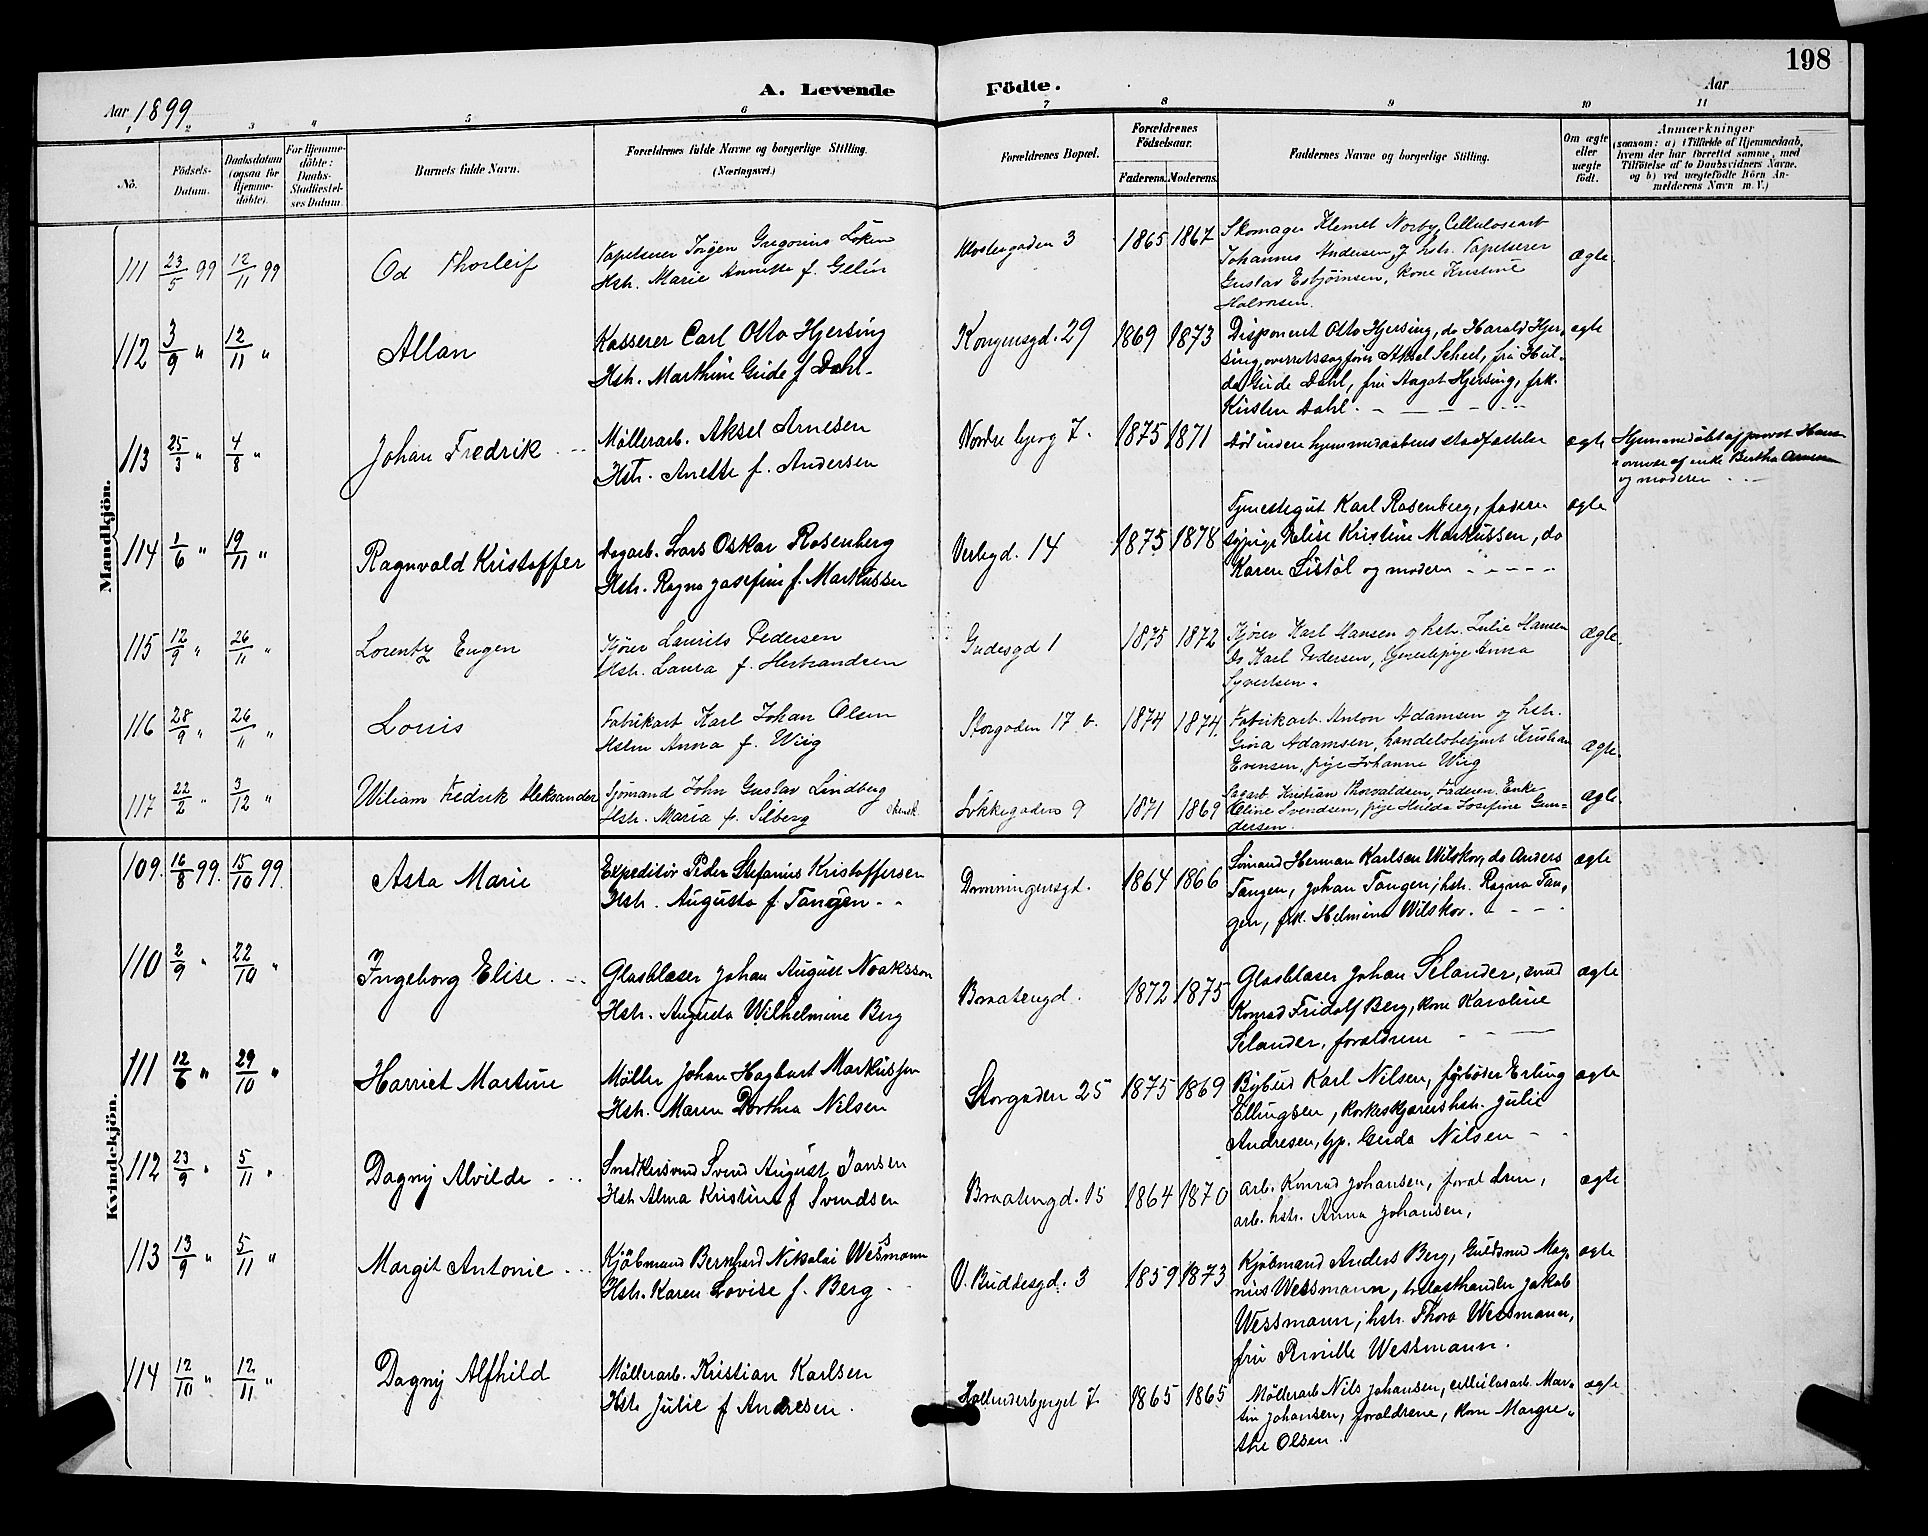 198
A. Levende Födte.
Aar 1899
Aar
1 2 3 4 5 6 7 8 9 10 11
No.
Födsels-Datum.
Daabsdatum (ogsaa for Hjemme-döbte).
For Hjemme-döbte: Daabs-Stadfæstel-ses Datum
Barnets fulde Navn.
Forældrenes fulde Navne og borgerlige Stilling.
(Næringsvei.)
Forældrenes Bopæl.
Forældrenes Födselsaar.
Faderens. Moderens.
Faddernes Navne og borgerlige Stilling.
Om ægte eller uægte födt.
Anmærkninger
(saasom: a) i Tilfælde af Hjemmedaab,
hvem der har forrettet samme, med
Tilföielse af to Daabsvidners Navne.
og b) ved uægtefödte Börn An-
melderens Navn m. V.)
Mandkjön.
111 23/5 99 12/11 99 Od Thorleif
Tapetserer Jörgen Gregorius Löken
Hstr. Marie Annette f. Gelin
Klostergaden 3 1865 1867
Skomager Klemet Norby, Cellulosearb
Johannes Andersen og hstr. Tapetserer
Gustav Esbjörnsen, Kone Kristine
Halvorsen.
Ægte.
112 3/9 " 12/11 " Allan
Kasserer Carl Otto Hjersing
Hstr. Marthine Gude f Dahl
Kongensgd. 29 1869 1873
Disponent Otto Hjersing, do Harald Hjer-
sing, overretssagförer Aksel Scheel, fru Hul-
da Gude Dahl, fru Aagot Hjersing, frk.
Kirsten Dahl.
ægte
113 25/3 " 4/8 " Johan Fredrik
Møllerarb. Aksel Arnesen
Hstr. Anette f. Andersen
Nordre bjerg 7. 1875 1871
død inden hjemmedaabens stadfæstelse
ægte
Hjemmedøbt af provst
overvær af enke Bertha Arnesen
og moderen
114 1/6 " 19/11 " Ragnvald Kristoffer
Dagarb. Lars Oskar Rosenberg
Hstr. Ragna Josefine f. Markussen
Verksgd. 14 1875 1878
Tjenestegut Karl Rosenberg, faderen
tjpige Elise Kristine Markussen, do
Karen Listöl og moderen
ægte
115 12/9 " 26/11 " Lorentz Eugen
Kjörer Laurits Pedersen
Hstr. Laura f. Hertzandsen
Gudesgd 1 1875 1872
Kjörer Karl Hansen og hstr. Julie Hansen
do Karl Pedersen, tjenestepige Anna
Syvertsen.
Ægte.
116 28/9 " 26/11 " Louis
Fabrikarb Karl Johan Olsen
Hstru Anna f. Wiig
Storgaden 17 b. 1874 1874.
Fabrikarb. Anton Adamsen og hstr.
Gina Adamsen, handelsbetjent Kristian
Evensen, pige Johanne Wiig
Ægte.
117 22/2 " 3/12 " Wiliam Fredrik Aleksander
Sjömand John Gustav Lindberg
Hstr. Maria f. Silberg
Løkkegaden 9 1871 1869
Sagarb Kristian Thorvaldsen, Faderen, Enke
Eline Svendsen, pige Hulda Josefine Gun-
dersen.
Ægte.
Kvindekjön.
109. 16/8 99. 15/10 99. Asta Marie
Expeditör Peder Stefanius Kristoffersen
Hstr. Augusta f. Tangen
Dronningensgd. 1864 1866
Sömand Herman Karlsen Wilskov, do Anders
Tangen, Johan Tangen, hstr. Ragna Tan-
gen, frk. Helmine Wilskov.
ægte
110 2/9 " 22/10 " Ingeborg Elise
Glasblæser Johan August Noaksson
Hstr. Augusta Wilhelmine Berg
Braatengd. 1872 1875
Glasblæser Johan Selander, snd
Konrad Fridolf Berg, kone Karoline
Selander, forældrene
ægte
111 12/6 " 29/10 " Harriet Martine
Møller Johan Hagbart Markussen
Hstr. Maren Dorthea Nilsen
Storgaden 25 1875 1869
Bybud Karl Nilsen, fyrbøder Erling
Ellingsen, korkeskjærers hstr. Julie
Andresen, tjp. Gerda Nilsen
ægte
112 23/9 " 5/11 " Dagny Alvilde
Snedkersvend Svend August Jansen
Hstr Alma Kristine f Svendsen
Braatengd. 15 1864 1870
arb. Konrad Johansen, forældrene,
arb. hstr. Anna Johansen,
ægte
113 13/9 " 5/11 " Margit Antonie
Kjöbmand Bernhard Nikolai Wessmann
Hstr. Karen Lovise f. Berg
V. Buddesgd. 3 1859 1873
Kjöbmand Anders Berg, Guldsmed Mag-
nus Wessmann, trælasthandler Jakob
Wessmann, hstr. Thora Wessmann,
fru Pernille Wessmann.
ægte
114 12/10 " 12/11 " Dagny Alfhild
Møllerarb. Kristian Karlsen
Hstr Julie f Andresen.
Hollenderbjerget 7 1865 1865
Møllerarb Nils Johansen, cellulosarb. Mar-
tin Johansen, forældrene, kone Margre-
the Olsen.
ægte